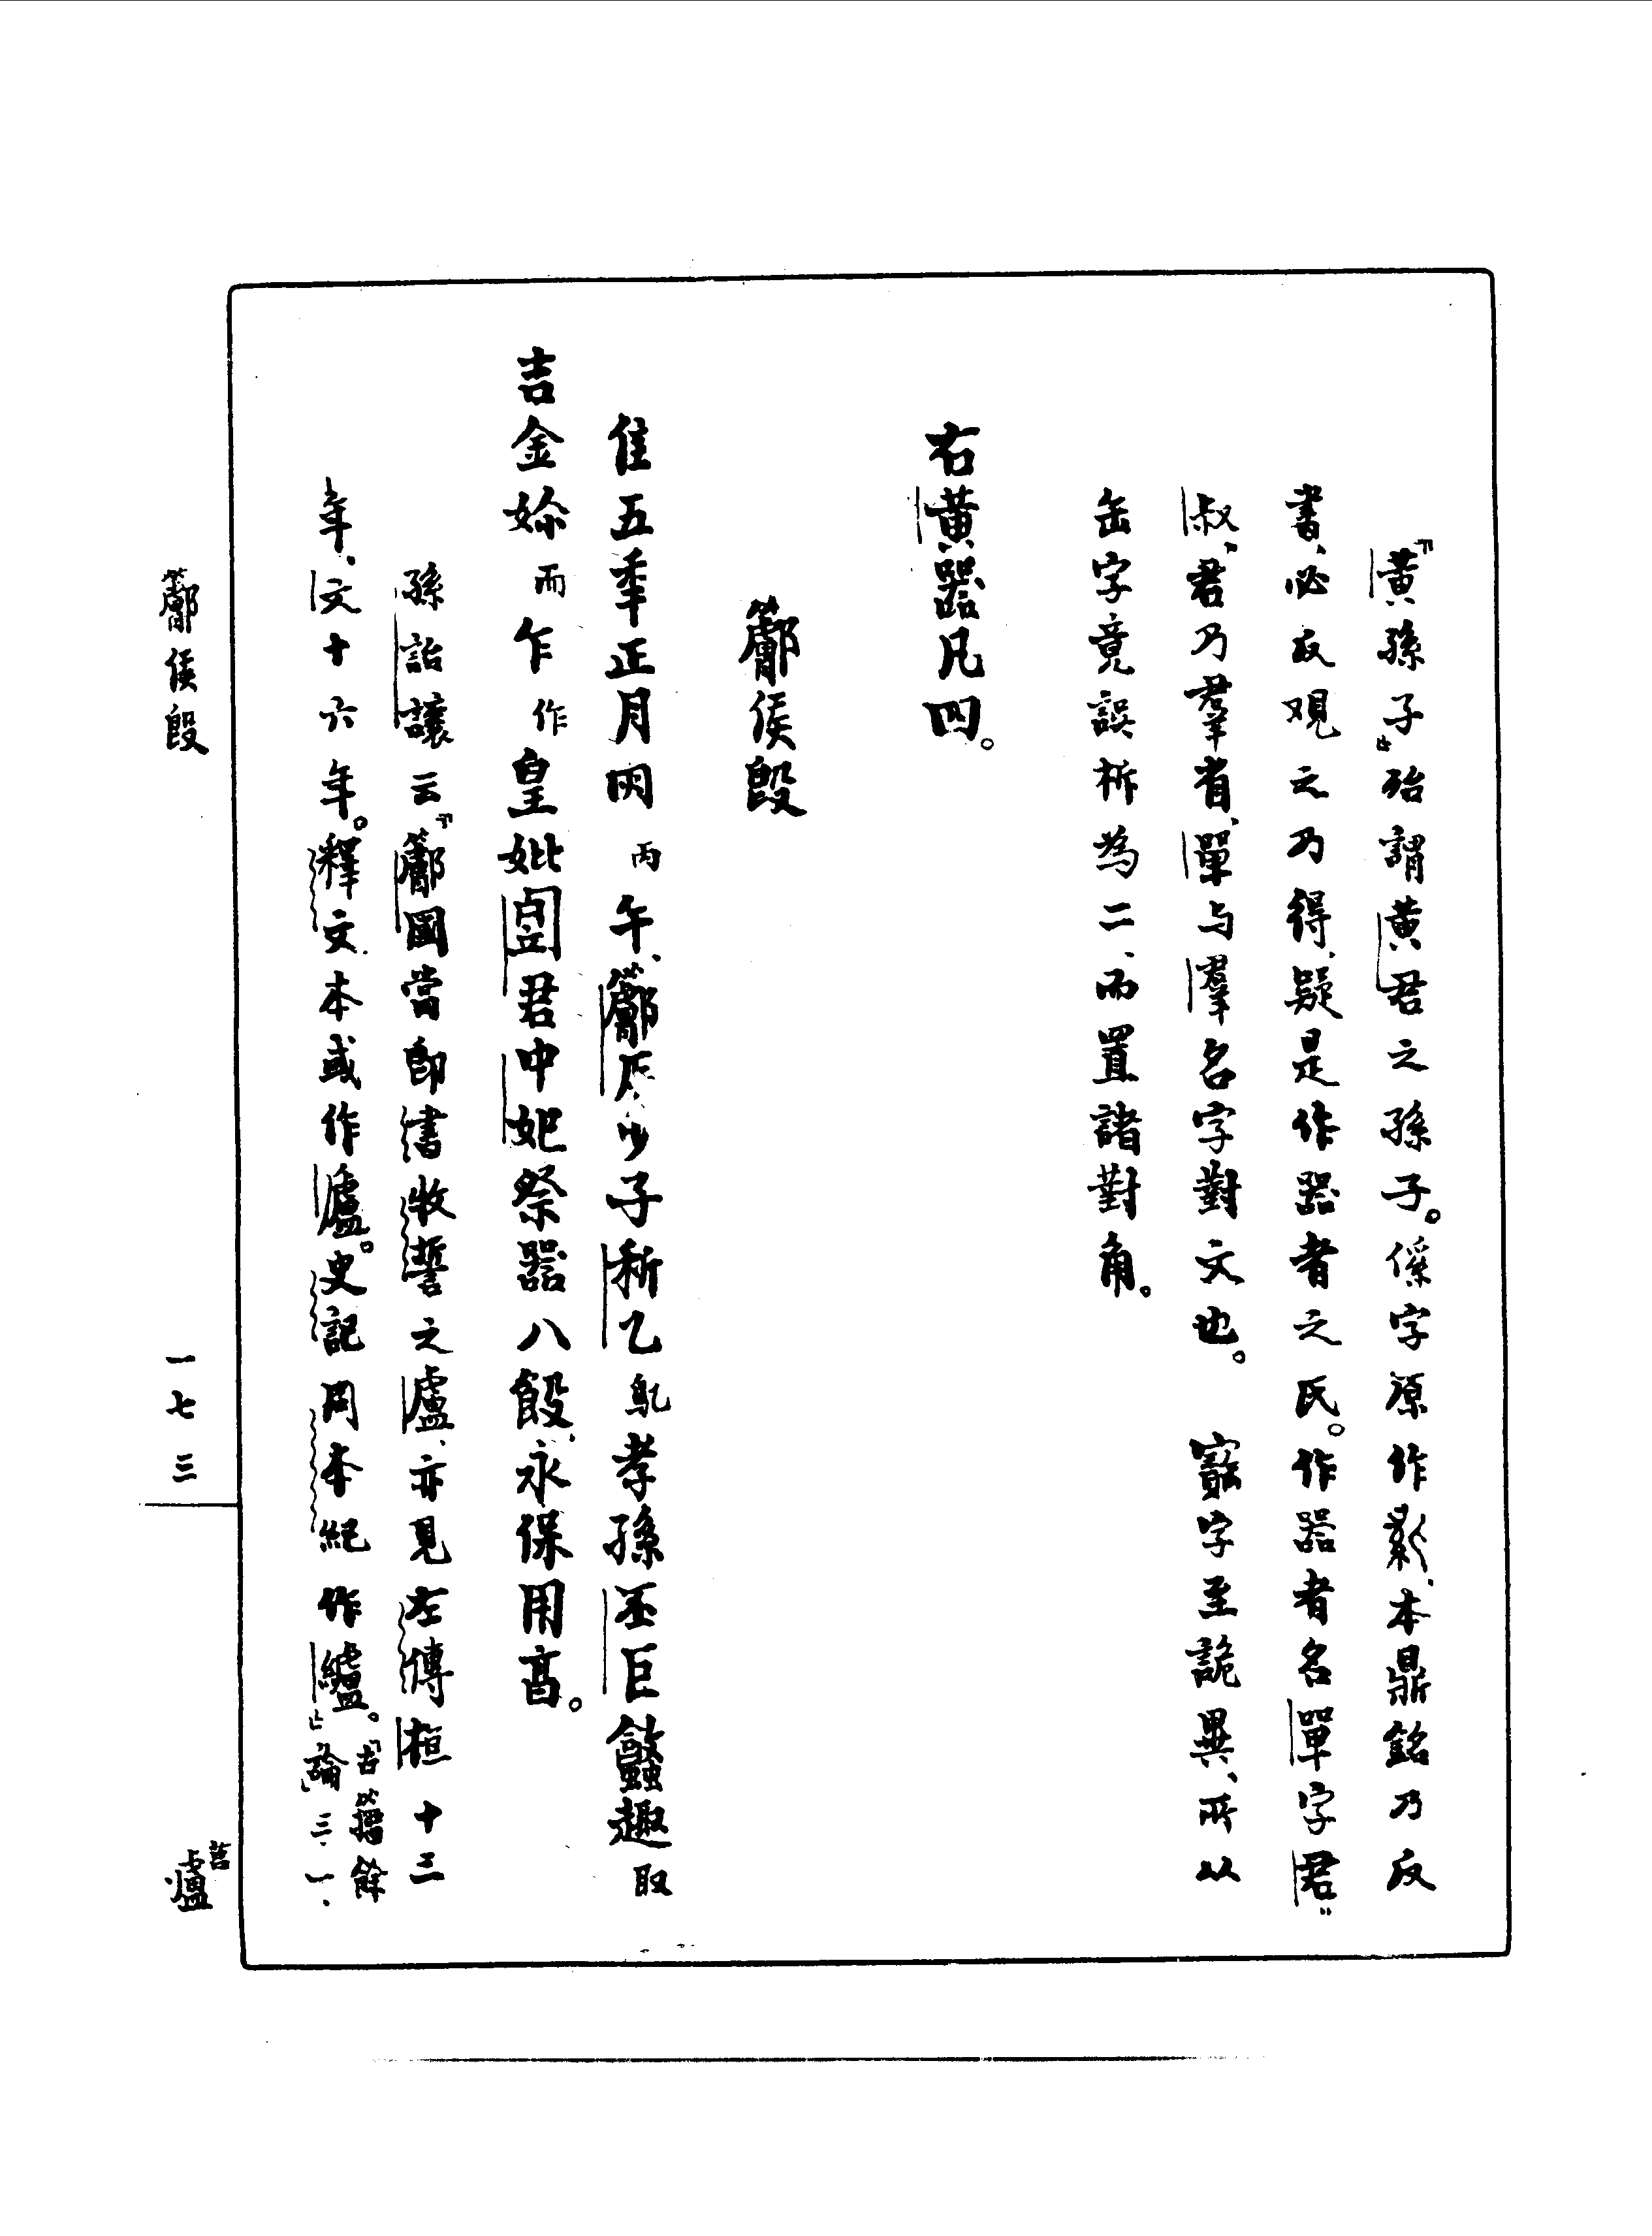 「黃孫子」殆謂黃君之孫子。係字原作𦅫、本鼎銘乃反
書、必反觀之乃得、疑是作器者之氏。作器者名單字君
叔、君乃羣省、單与羣名字對文也。　字至詭異、所以
缶字竟誤析為二、而置諸對角。
右黃器凡四。
侯𣪘
隹五年正月丙午、侯少子析乙孝孫丕巨趣取
吉金妳而乍作皇妣君中妃祭器八𣪘、永保用亯。
孫詒讓云「國當即書牧誓之盧、亦見左傳桓十三
年、文十六年。釋文本或作盧。史記周本紀作纑。」「古籀餘
論」三、一、
侯𣪘
一七三
莒